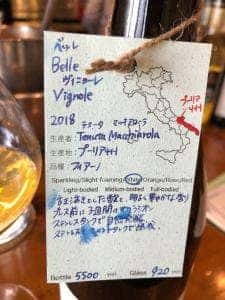 ベッレ
Belle
ヴィニョーレ
Vignole
2018 テヌータ マッキアローラ
生産者: Tenuta Macchiarola
生産地: プーリア州
品種: フィアーノ
プーリア州
Sparkling/Slight foaming/White/Orange/Rose/Red
Light-bodied Midium-bodied Full-bodied
とした酸と、華やかな香り
プレス前に3週間
ステンレスタンクで
ステンレス
Bottle 5500 yen Glass 920 yen